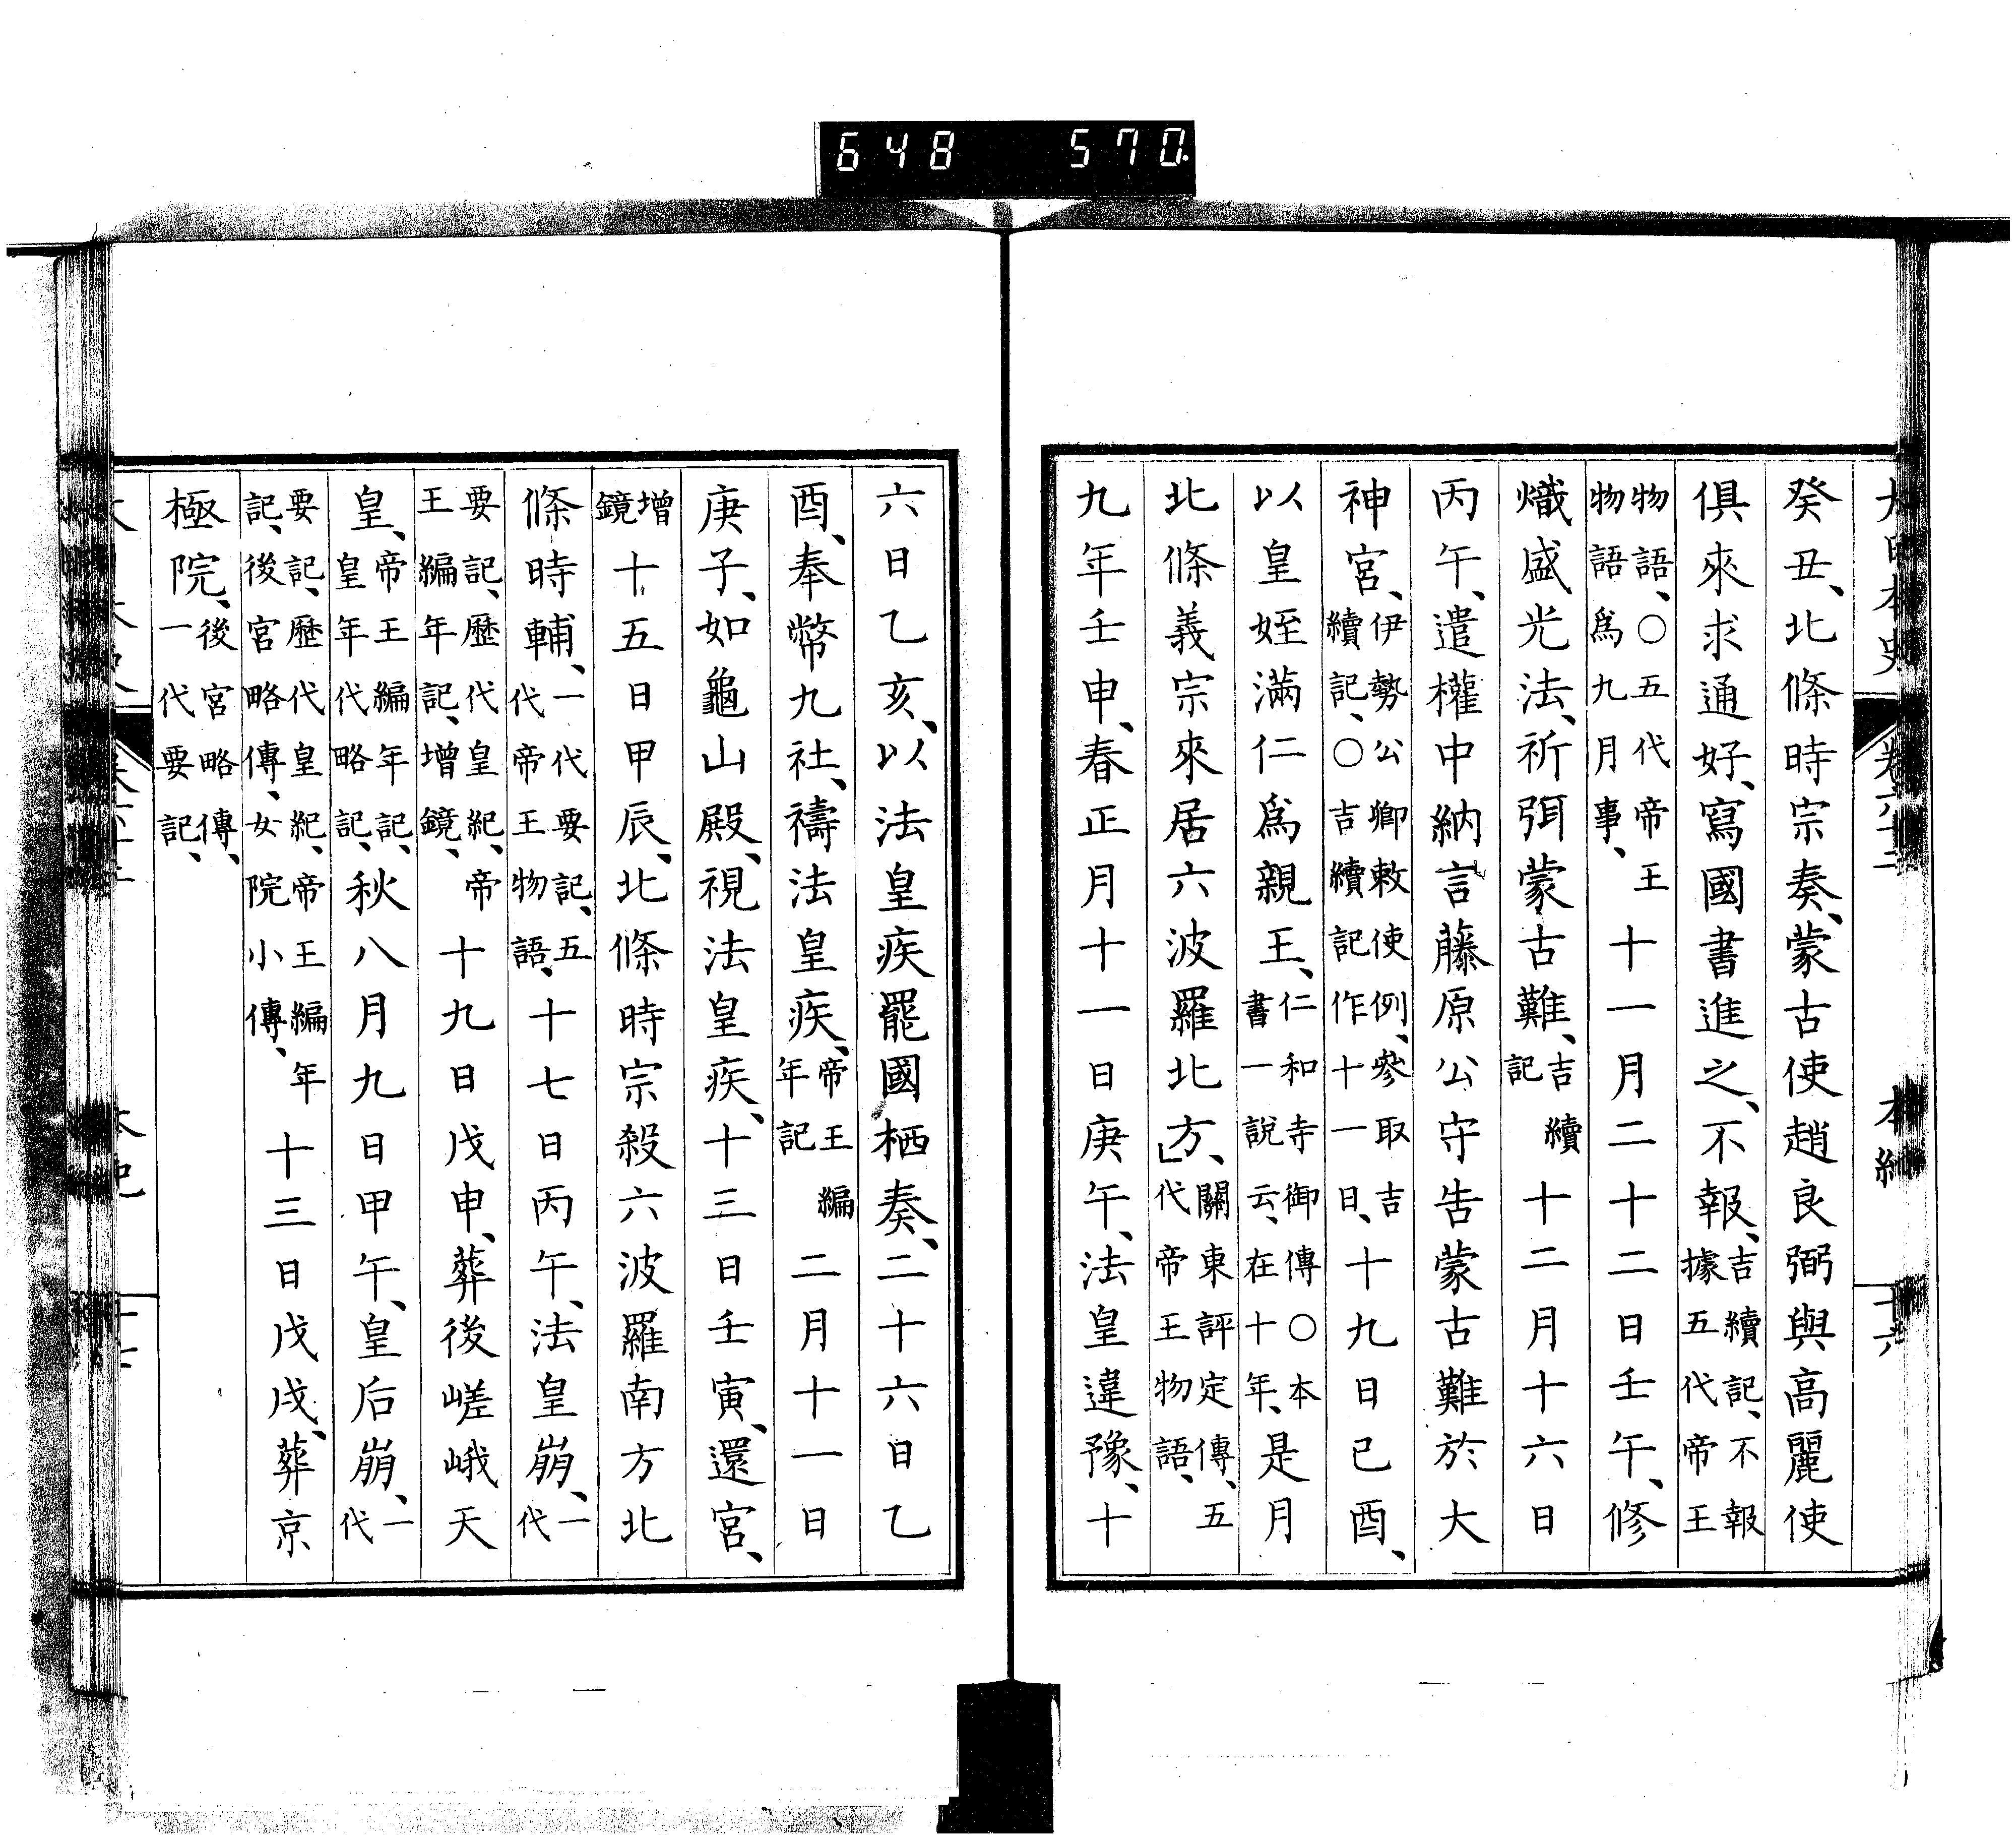 648 570
大日本史 本紀 十六
癸丑、北條時宗奏、蒙古使趙良弼與高麗使
俱來求通好、寫國書進之、不報、吉續記、不報據五代帝王
物語、○五代帝王物語爲九月事、十一月二十二日壬午、修
熾盛光法、祈弭蒙古難、吉續記十二月十六日
丙午、遣權中納言藤原公守告蒙古難於大
神宮、伊勢公卿敕使例、參取吉續記、○吉續記作十一日、十九日己酉、
以皇姪滿仁爲親王、仁和寺御傳○本書一說云、在十年、是月
北條義宗來居六波羅北方、」關東評定傳、五代帝王物語、
九年壬申、春正月十一日庚午、法皇違豫、十
六日乙亥、以法皇疾罷國栖奏、二十六日乙
酉、奉幣九社、禱法皇疾、帝王編年記二月十一日
庚子、如龜山殿、視法皇疾、十三日壬寅、還宮、
增鏡十五日甲辰、北條時宗殺六波羅南方北
條時輔、一代要記、五代帝王物語、十七日丙午、法皇崩、一代
要記、歷代皇紀、帝王編年記、增鏡、十九日戊申、葬後嵯峨天
皇、帝王編年記、皇年代略記、秋八月九日甲午、皇后崩、一代
要記、歷代皇紀、帝王編年記、後宮略傳、女院小傳、十三日戊戌、葬京
極院、後宮略傳、一代要記、